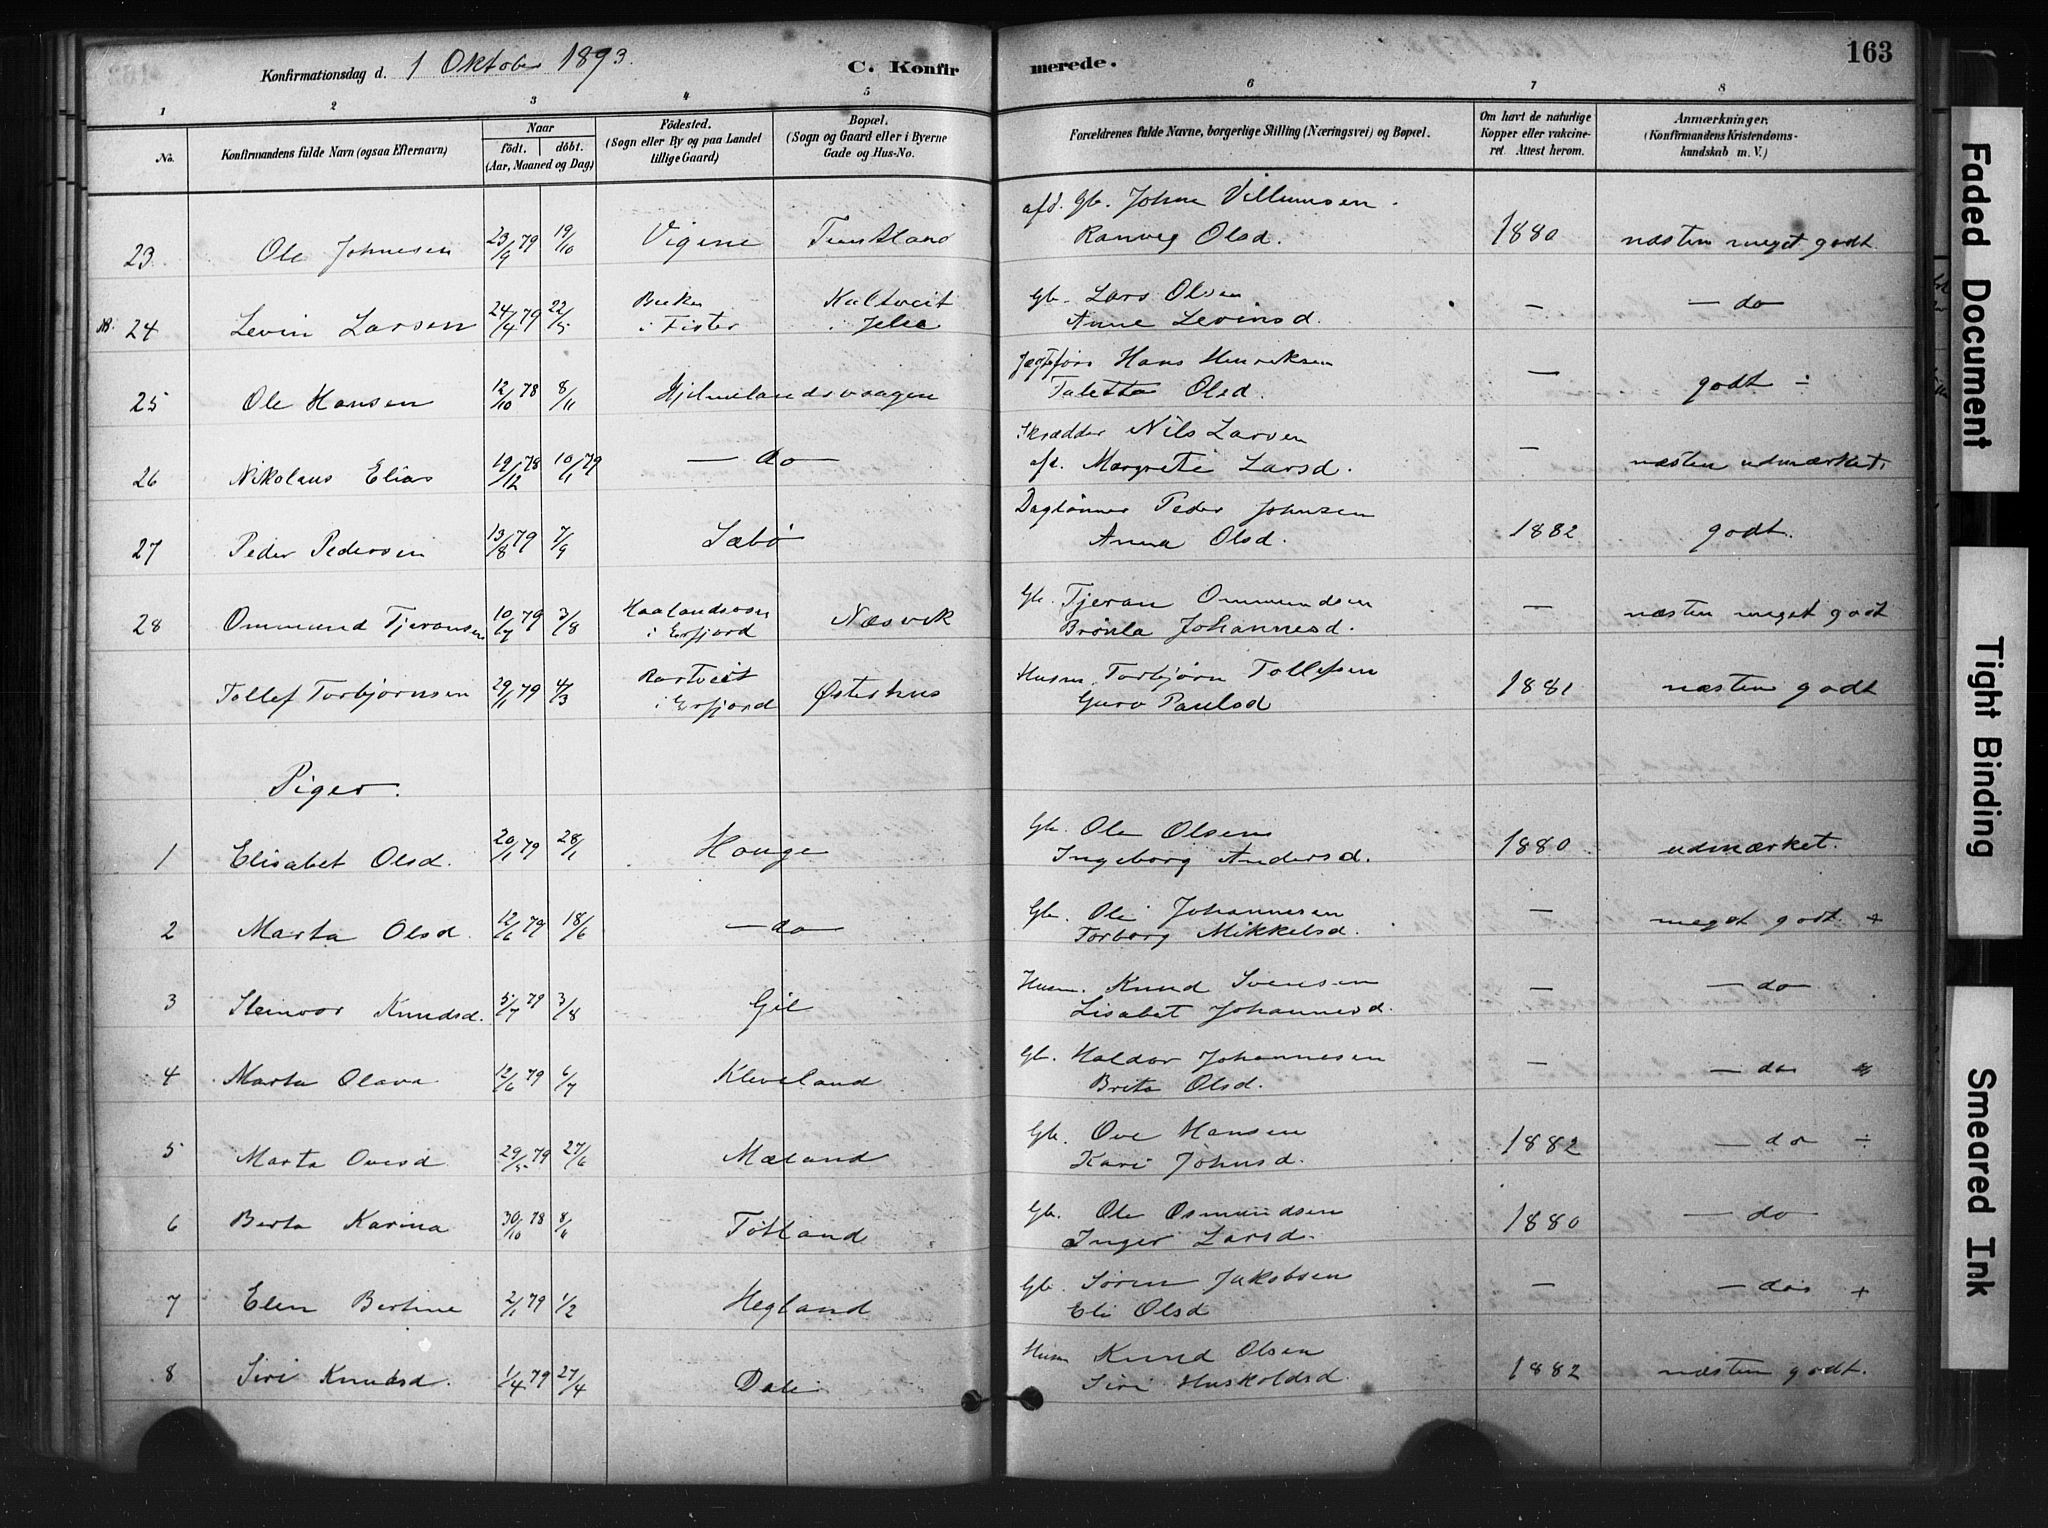 Konfirmationsdag d. 1 Oktober 1893. C. Konfirmerede. 163
1 2 3 4 5 6 7 8
No. Konfirmandens fulde Navn (ogsaa Efternavn) Naar födt. döbt. (Aar, Maaned og Dag) Födested. (Sogn eller By og paa Landet tillige Gaard) Bopæl. (Sogn og Gaard eller i Byerne Gade og Hus-No. Forældrenes fulde Navne, borgerlige Stilling (Næringsvei) og Bopæl. Om havt de naturlige Kopper eller vakcineret. Attest herom. Anmærkninger. (Konfirmandens Kristendomskundskab m. V.)
23 Ole Johnesen 23/9 79 19/10 Vigene afd. Gb. Johne Villumsen. Ranveg Olsd. 1880 næsten meget godt
NB. 24 Levin Larsen 24/4 79 22/5 i Fister Kultveit i Jelse Gb. Lars Olsen Anne Levinsd. — — do
25 Ole Hansen 12/10 78 8/11 Hjelmelandsvaagen Hans Henriksen Taletta Olsd. — godt ÷
26 Nikolaus Elias 19/12 78 10/1 79 — do — Skrædder Nils Larsen Margrete Larsd. — næsten udmærket.
27 Peder Pedersen 13/8 79 7/9 Sæbø Daglønner Peder Johnsen Anna Olsd. 1882 godt.
28 Ommund Tjeransen 10/7 79 3/8 i Erfjord Næsvik Gb. Tjeran Ommundsen Johannesd. — næsten meget godt
Tollef Torbjørnsen 29/1 79 4/3 i Erfjord Østerhus Husm. Torbjørn Tollefsen Guro Paulsd 1881 næsten godt
Piger.
1 Elisabet Olsd. 20/1 79 28/1 Houge Gb. Ole Olsen Ingeborg Andersd. 1880 udmærket.
2 Marta Olsd. 12/6 79 18/6 — do — Gb. Ole Johannesen Torborg Mikkelsd. — meget godt +
3 Steinvor Knudsd. 5/7 79 3/8 Gil Husm. Knud Svensen Lisabet Johannesd. — — do
4 Marta Olava 12/6 79 6/7 Kleveland Gb. Haldor Johannesen Brita Olsd. — — do
5 Marta Ovesd 29/5 79 27/6 Mæland Gb. Ove Hansen Kari Johnsd. 1882 — do ÷
6 Berta Karina 30/10 78 Tøtland Gb. Ole Osmundsen Inger Larsd. 1880 — do
7 Elen Bertine 2/1 79 1/2 Hegland Gb. Sören Jakobsen Eli Olsd — — do +
8 Siri Knudsd. 1/4 79 27/4 Dale Husm Knud Olsen Siri Huskoldsd. 1882 næsten godt.
Faded Document
Tight Binding
Smeared Ink